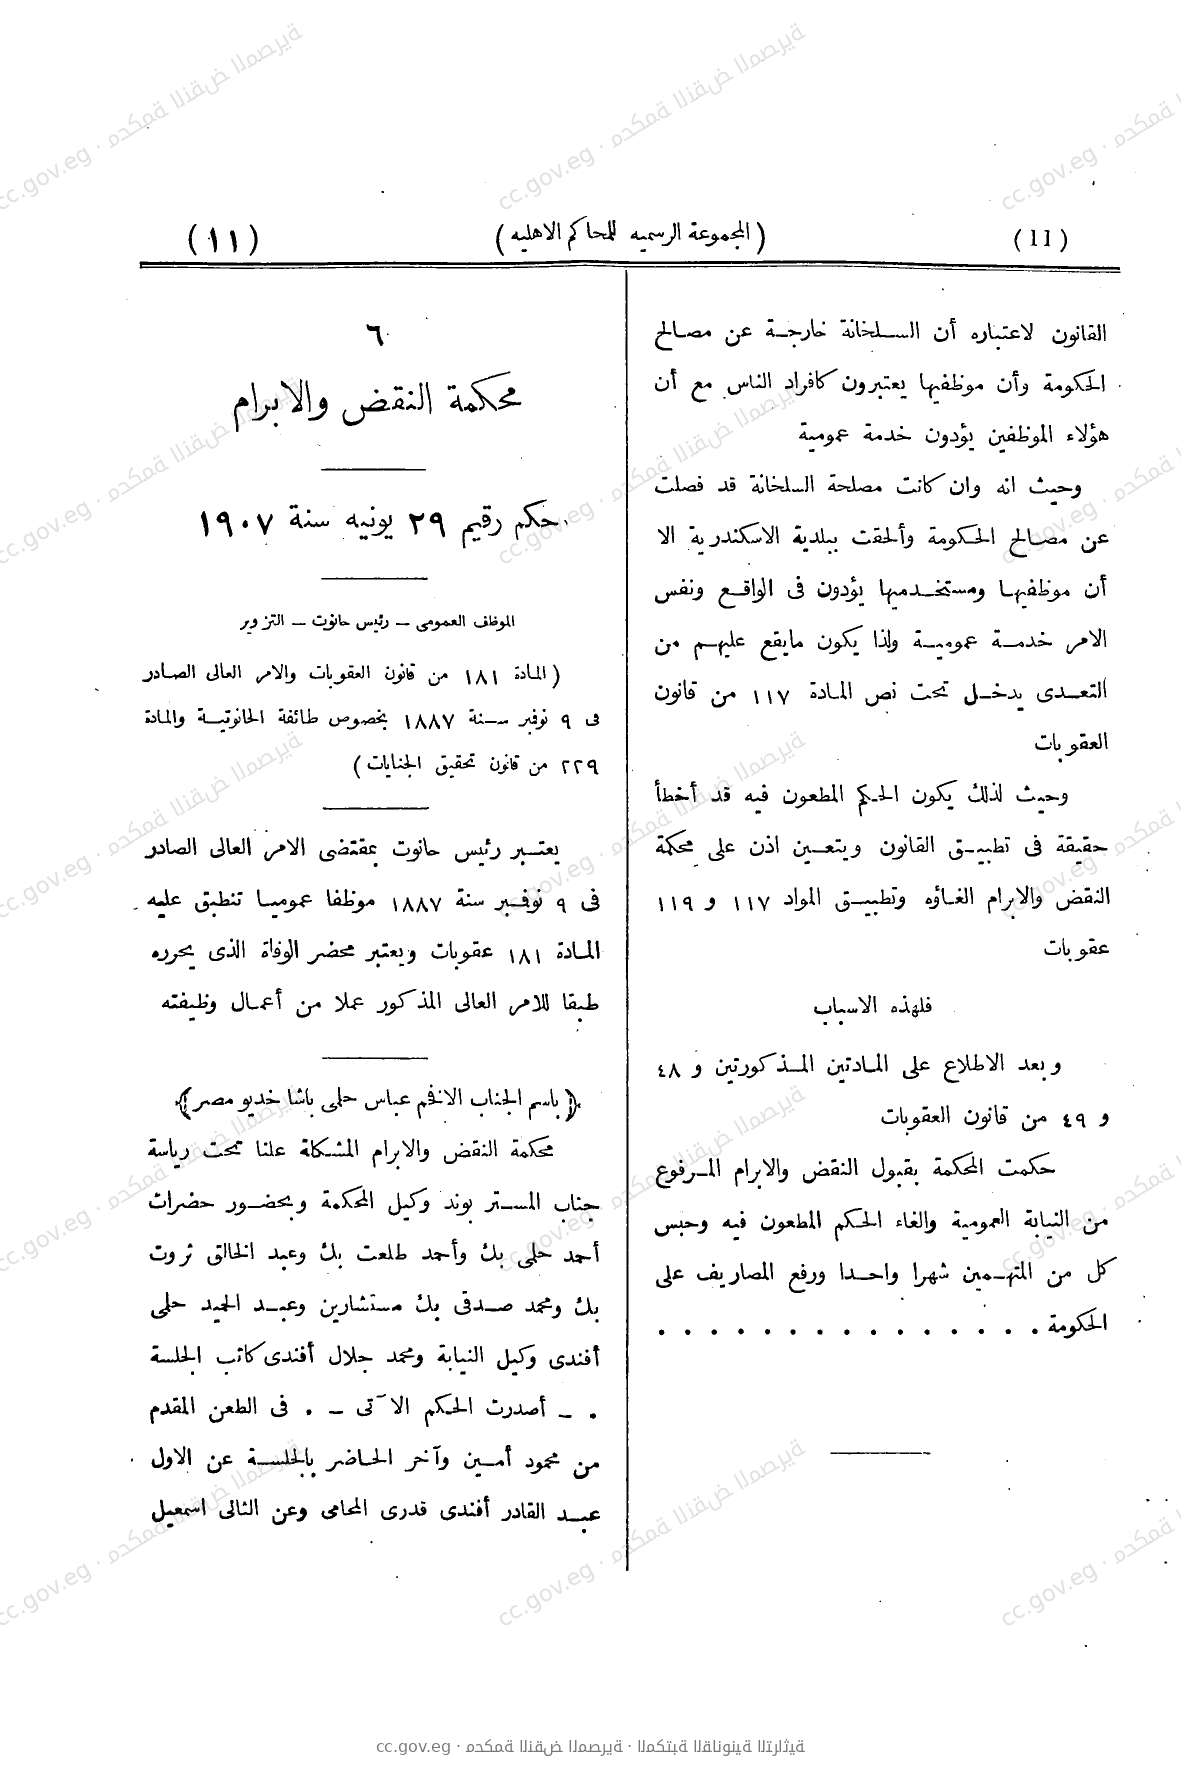 (11) (المجموعة الرسميه للمحاكم الاهليه) (١١)
القانون لاعتباره أن السلخانة خارجة عن مصالح
الحكومة وأن موظفيها يعتبرون كافراد الناس مع أن
هؤلاء الموظفين يؤدون خدمة عمومية
وحيث انه وان كانت مصلحة السلخانة قد فصلت
عن مصالح الحكومة وألحقت ببلدية الاسكندرية الا
أن موظفيها ومستخدميها يؤدون فى الواقع ونفس
الامر خدمة عمومية ولذا يكون مايقع عليهم من
التعدى يدخل تحت نص المادة ١١٧ من قانون
العقوبات
وحيث لذلك يكون الحكم المطعون فيه قد أخطأ
حقيقة فى تطبيق القانون ويتعين اذن على محكمة
النقض والابرام الغاؤه وتطبيق المواد ١١٧ و ١١٩
عقوبات
فلهذه الاسباب
وبعد الاطلاع على المادتين المذكورتين و ٤٨
و ٤٩ من قانون العقوبات
حكمت المحكمة بقبول النقض والابرام المرفوع
من النيابة العمومية والغاء الحكم المطعون فيه وحبس
كل من المتهمين شهرا واحدا ورفع المصاريف على
الحكومة . . . . . . . . . . . . . . .
٦
محكمة النقض والابرام
حكم رقيم ٢٩ يونيه سنة ١٩٠٧
الموظف العمومى – رئيس حانوت – التزوير
(المادة ١٨١ من قانون العقوبات والامر العالى الصادر
فى ٩ نوفمبر سنة ١٨٨٧ بخصوص طائفة الحانوتية والمادة
٢٢٩ من قانون تحقيق الجنايات)
يعتبر رئيس حانوت بمقتضى الامر العالى الصادر
فى ٩ نوفمبر سنة ١٨٨٧ موظفا عموميا تنطبق عليه
المادة ١٨١ عقوبات ويعتبر محضر الوفاة الذى يحرره
طبقا للامر العالى المذكور عملا من أعمال وظيفته
﴿باسم الجناب الافخم عباس حلمى باشا خديو مصر﴾
محكمة النقض والابرام المشكلة علنا تحت رياسة
جناب المستر بوند وكيل المحكمة وبحضور حضرات
أحمد حلمى بك وأحمد طلعت بك وعبد الخالق ثروت
بك ومحمد صدقى بك مستشارين وعبد الحميد حلمى
أفندى وكيل النيابة ومحمد جلال أفندى كاتب الجلسة
. – أصدرت الحكم الآتى – . فى الطعن المقدم
من محمود أمين وآخر الحاضر بالجلسة عن الاول
عبد القادر أفندى قدرى المحامى وعن الثانى اسمعيل
cc.gov.eg · محكمة النقض المصرية · المكتبة القانونية التراثية